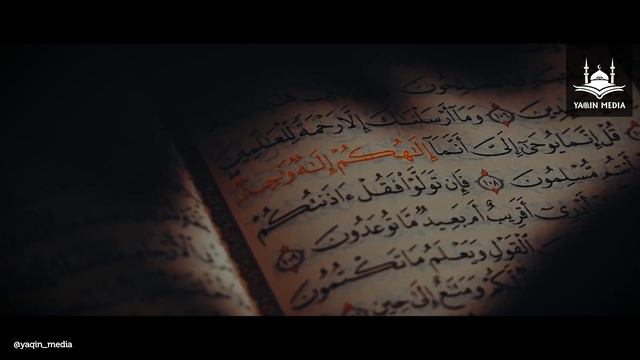 YAQIN MEDIA
وَمَآ أَرْسَلْنَٰكَ إِلَّا رَحْمَةً لِّلْعَٰلَمِينَ ١٠٧
قُلْ إِنَّمَا يُوحَىٰٓ إِلَىَّ أَنَّمَآ إِلَٰهُكُمْ إِلَٰهٌ وَٰحِدٌ
أَنتُم مُّسْلِمُونَ ١٠٨ فَإِن تَوَلَّوْا۟ فَقُلْ ءَاذَنتُكُمْ
أَقَرِيبٌ أَم بَعِيدٌ مَّا تُوعَدُونَ ١٠٩
ٱلْقَوْلِ وَيَعْلَمُ مَا تَكْتُمُونَ
لَكُمْ وَمَتَٰعٌ إِلَىٰ حِينٍ
@yaqin_media